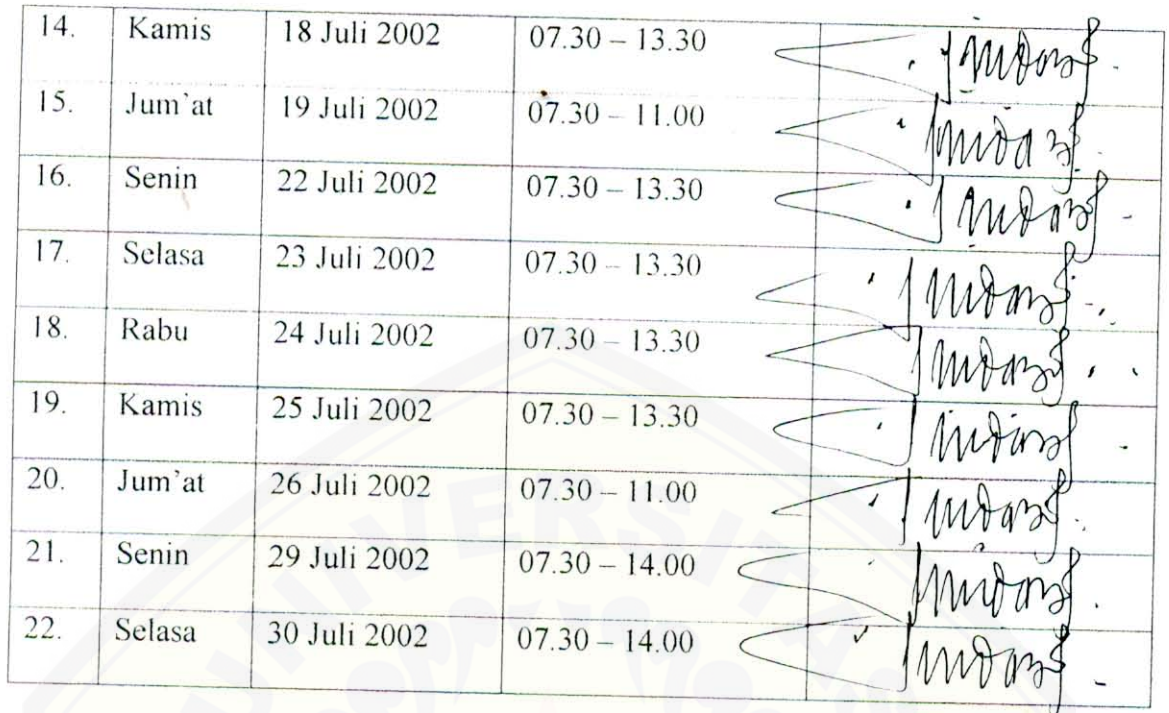 14. Kamis 18 Juli 2002 07.30 – 13.30
15. Jum'at 19 Juli 2002 07.30 – 11.00
16. Senin 22 Juli 2002 07.30 – 13.30
17. Selasa 23 Juli 2002 07.30 – 13.30
18. Rabu 24 Juli 2002 07.30 – 13.30
19. Kamis 25 Juli 2002 07.30 – 13.30
20. Jum'at 26 Juli 2002 07.30 – 11.00
21. Senin 29 Juli 2002 07.30 – 14.00
22. Selasa 30 Juli 2002 07.30 – 14.00
UNIVERSITAS